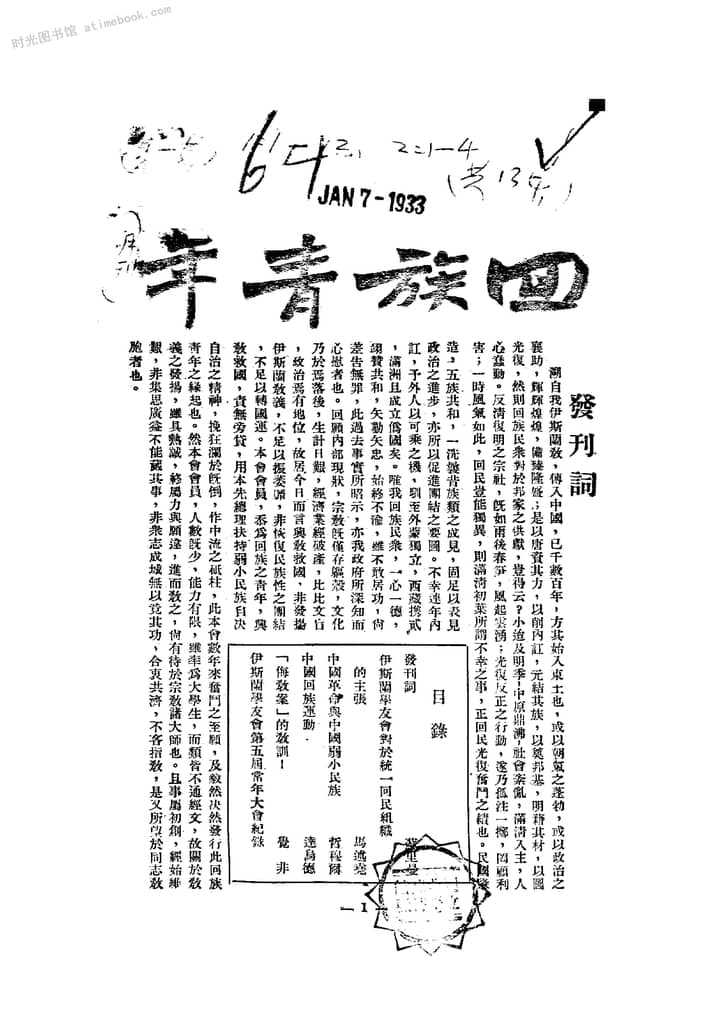 时光图书馆 atimebook.com
64
2:1-4
JAN 7-1933
回族青年
發刊詞
溯自我伊斯蘭敎,傳入中國,已千數百年,方其始入東土也,或以朝氣之蓬勃,或以政治之
襄助,輝輝煌煌,備臻隆盛;是以唐資其力,以削內訌,元結其族,以奠邦基,明藉其材,以圖
光復,然則回族民衆對於邦家之供獻,豈得云?小迨及明季!中原鼎沸,社會紊亂,滿清入主,人
心蠢動。反清復明之宗社,旣如雨後春笋,風起雲湧;光復反正之行動,遂乃孤注一擲,罔顧利
害;一時風氣如此,回民豈能獨異,則滿清初葉所謂不幸之事,正回民光復奮鬥之績也。民國
造,五族共和,一洗曩昔族類之成見,固足以表見
政治之進步,亦所以促進團結之要圖。不幸連年內
訌,予外人以可乘之機,馴至外蒙獨立,西藏携貳
,滿洲且成立僞國矣。唯我回族民衆,一心一德,
翊贊共和,矢勤矢忠,始終不渝,雖不敢居功,尙
差告無罪,此過去事實所昭示,亦我政府所深知而
心慰者也。回顧內部現狀,宗敎旣僅存軀殼,文化
乃於焉落後,生計日艱,經濟業經破產,比比文盲
,政治焉有地位,故居今日而言興敎救國,非發揚
伊斯蘭敎義,不足以振萎頹,非恢復民族性之團結
,不足以轉國運。本會會員,忝爲回族之青年,興
敎救國,責無旁貸,用本先總理扶持弱小民族自決
自治之精神,挽狂瀾於旣倒,作中流之砥柱,此本會數年來奮鬥之至願,及毅然決然發行此回族
青年之緣起也。然本會會員,人數旣少,能力有限,雖率爲大學生,而類皆不通經文,故關於敎
義之發揚,雖具熱誠,終屬力與願違,進而敎之,尙有待於宗敎諸大師也。且事屬初創,經始維
艱,非集思廣益不能蕆其事,非衆志成城無以竟其功,合衷共濟,不吝指敎,是又所望於同志敎
胞者也。
目錄
發刊詞
伊斯蘭學友會對於統一回民組織
的主張 馬遙堯
中國革命與中國弱小民族 哲穆爾
中國回族運動 達烏德
「侮敎案」的敎訓! 覺非
伊斯蘭學友會第五屆常年大會紀錄
— 1 —